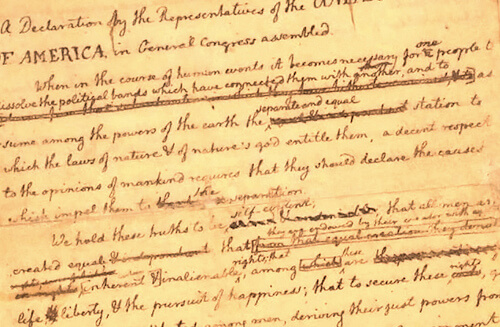 A Declaration by the Representatives of the UNITED
OF AMERICA, in General Congress assembled.
When in the course of human events it becomes necessary for one people to
dissolve the political bands which have connected them with another, and to as
separate and equal
sume among the powers of the earth the station to
which the laws of nature & of nature's god entitle them, a decent respect
to the opinions of mankind requires that they should declare the causes
which impel them to the separation.
self-evident,
We hold these truths to be that all men are
they are endowed by their creator with
created equal & independent that from that equal creation they derive
rights; that these
inherent & inalienable among which are
life liberty, & the pursuit of happiness; that to secure these rights
among men, deriving their just powers from